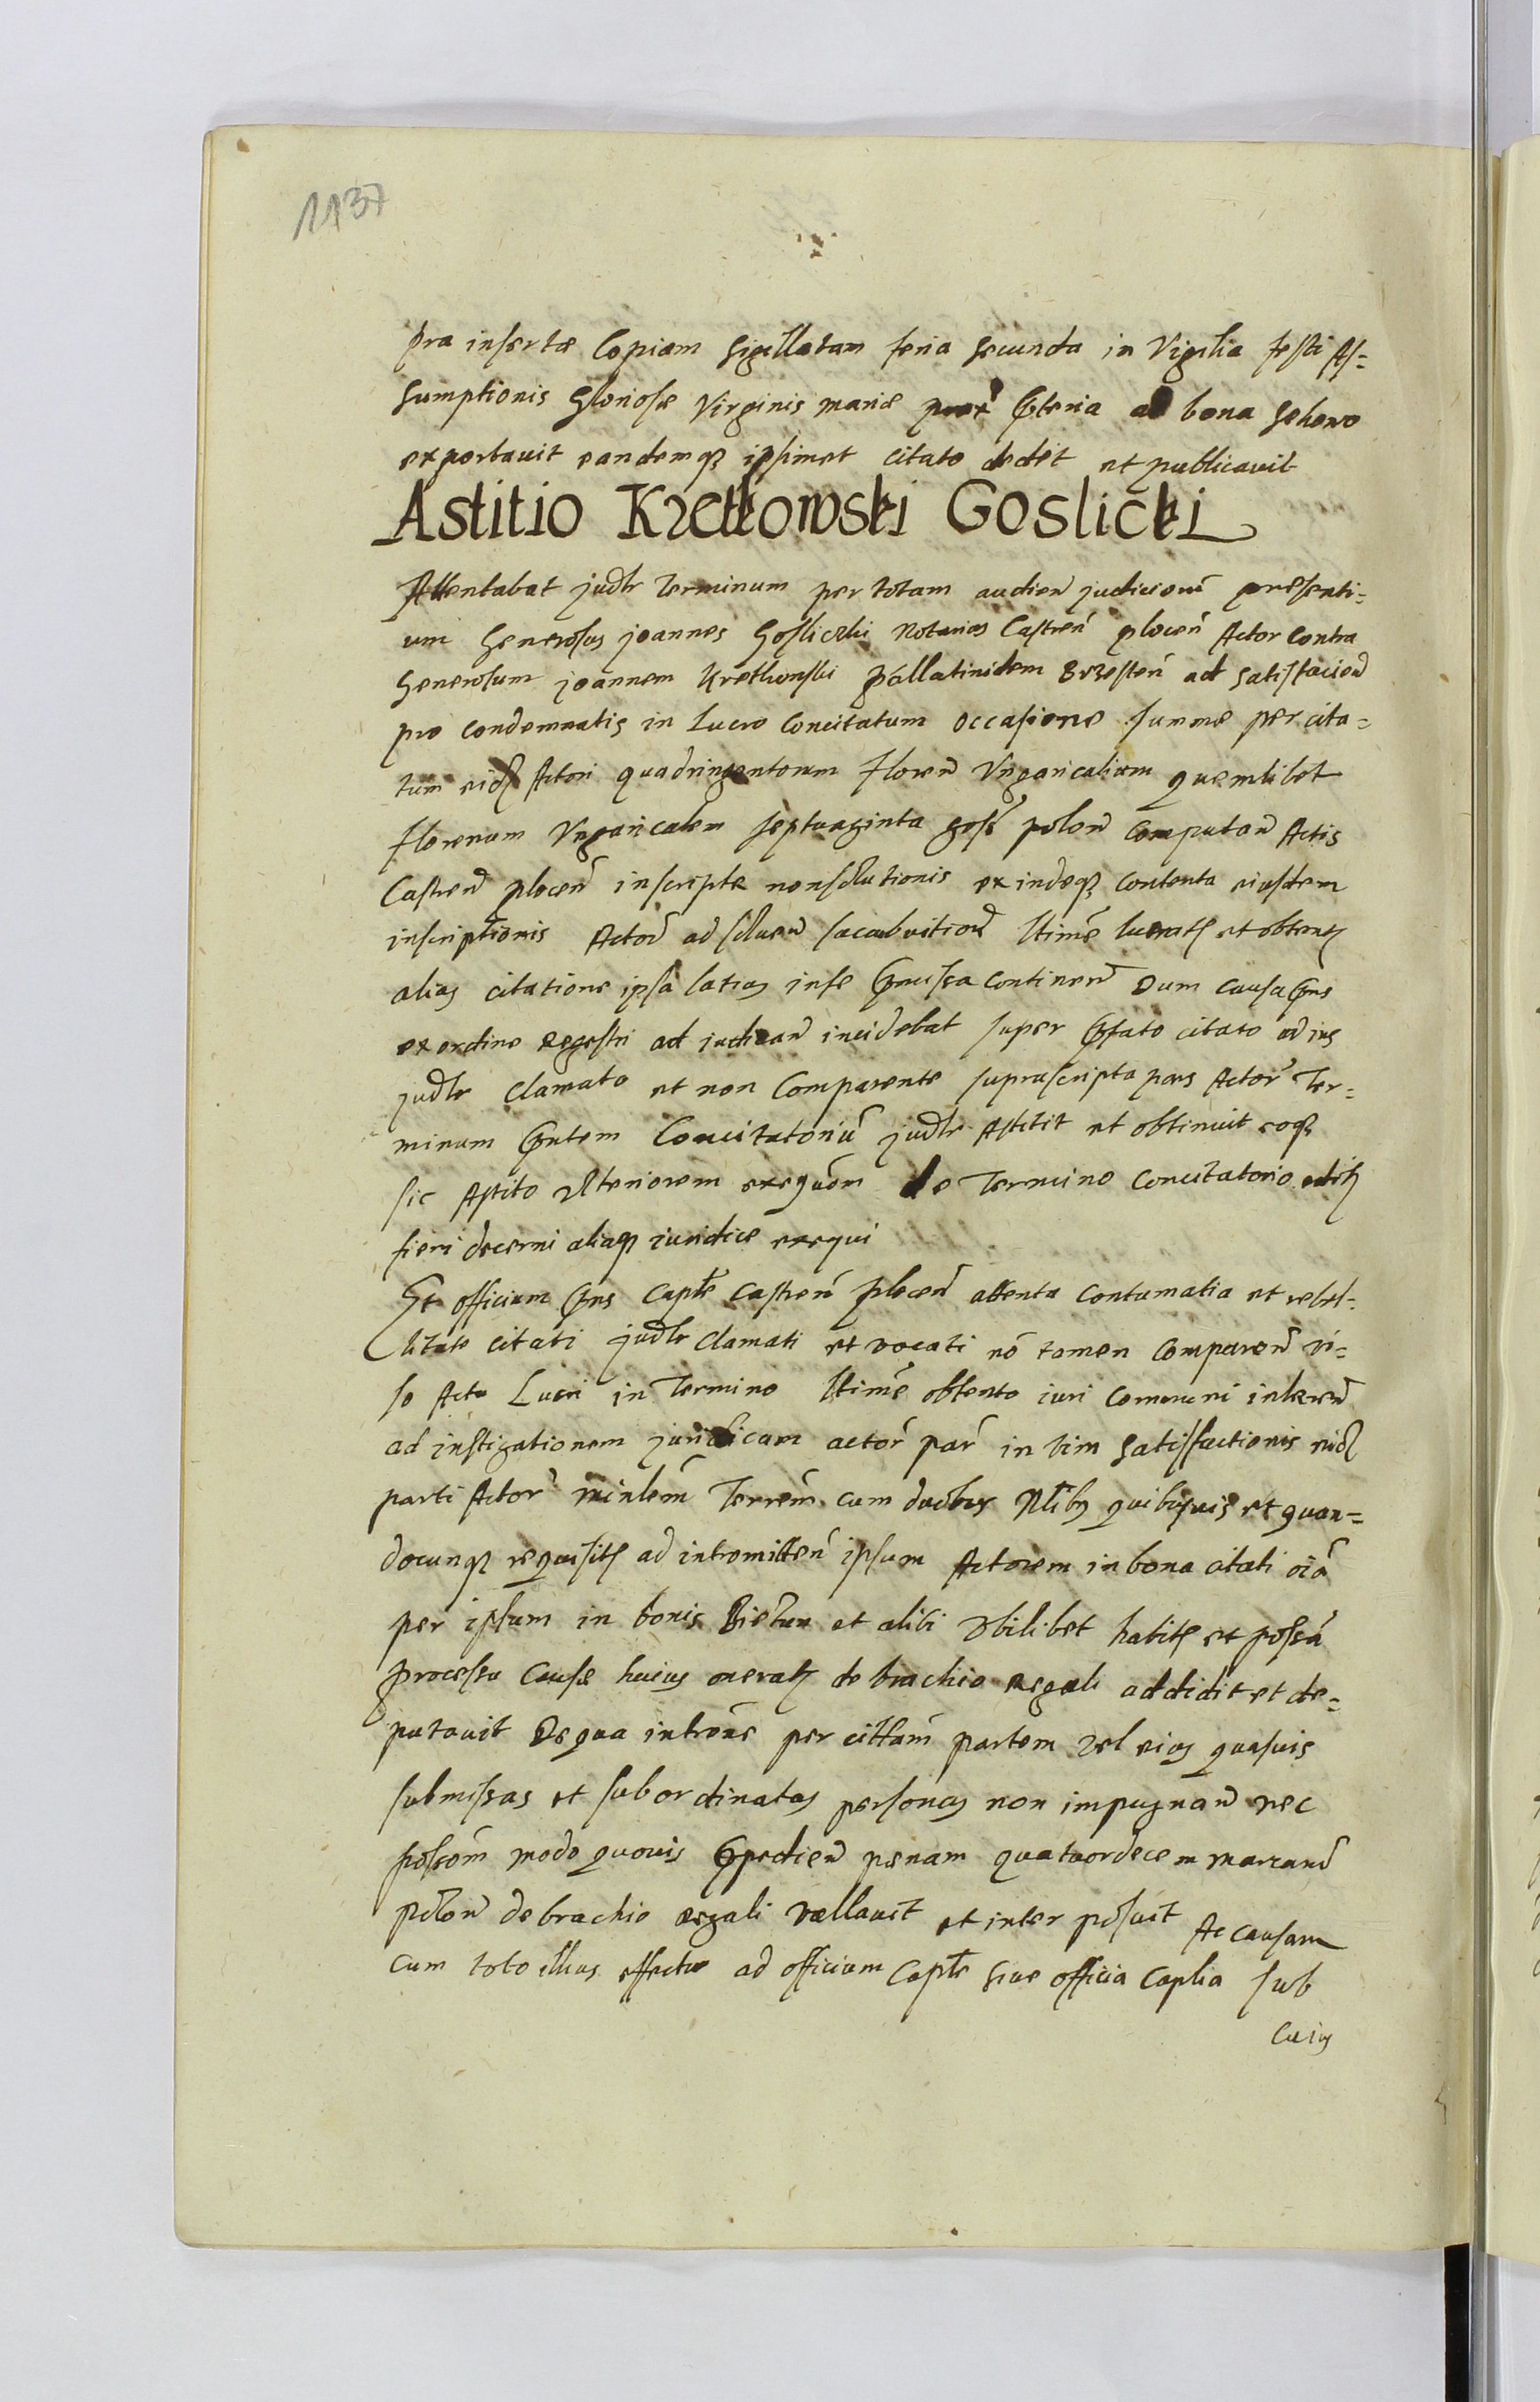 1137
pra insertæ Copiam Sigillatam feria Secunda in Vigilia festi As=
Sumptionis Gloriosæ Virginis mariæ prox' Pteria ad bona Sehewo
exportavit eandemq3 ipsimet citato dedit et publicavit
Astitio Kretkowski Goslicki
Attentabat judlr Terminum per totam audien judiciorũ presenti=
um Generosus joannes Gosliczki Notarius Castreñ ploceñ Actor contra
Generosum joannem Krethowski pallatinidem Brzesteñ ad satisfaciend
pro condemnatis in Lucro Concitatum occasione summæ per cita=
tum eidz Actori quadringentorum Florend Vngaricalium quemlibet
Florenum Vngaricalem septuaginta gross polon computand Actis
Castren ploceñ inscriptæ nonsolutionis exindeq3 contenta eiusdem
inscriptionis Actor ad solven ltime lucratis et obtentis
alias citatione ipsa latius in se pmissa continen Dum causa pns
ex ordine Regestri ad iudicand incidebat super pfato citato ad ius
judlr clamato et non Comparente suprascripta pars Actor Ter=
minum pntem Concitatoriũ judlr Astitit et obtinuit eoq3
sic Astito vlteriorem exequõem de Termino Concitatorio editis
fieri decerni aliaq3 iuridice exequi
Et officium pns Capte Castreñ ploceñ attenta contumatia et rebel=
litate citati judlr clamati et vocati nõ tamen comparen vi=
so Actu Lucri in Termino ltime obtento iuri communi inheren
ad instigationem juridicam actor par in vim satisfactionis eidz
parti Actor minlem Terrem cum duobus Nlibg quibusuis et quan=
docunq3 requisitis ad intromitten ipsum Actorem in bona citati oia
per ipsum in bonis Bietun et alibi vbilibet habitis et possa
processu causæ huius oneratis de brachio Regali addidit et de=
putavit De qua introne per cittam partem vel eius quasuis
submissas et subordinatas personas non impugnand nec
possom modo quovis Ppedien pænam quatuordecem marcarũ
polon de brachio regali vallavit et inter posuit Ac causam
cum toto illius effectu ad officium Capte sive officia Caplia sub
cuius